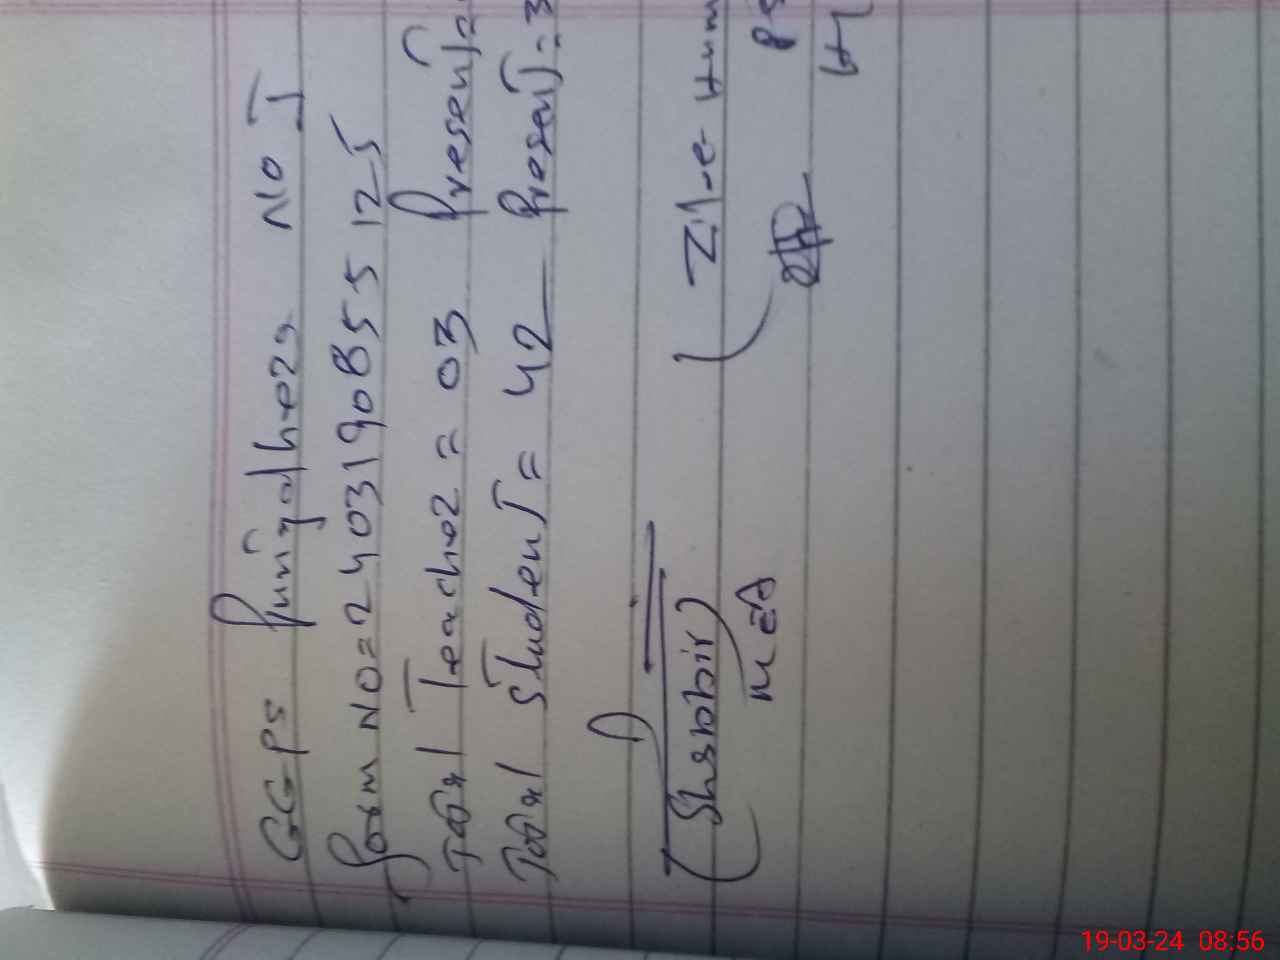 GGPS Pungalheza No I
Form No = 240319085512 5
Total Teacher = 03 Present =
Total Student = 42 Present = 3
(Shabbir) Zil-e-Hum
MEA
19-03-24 08:56